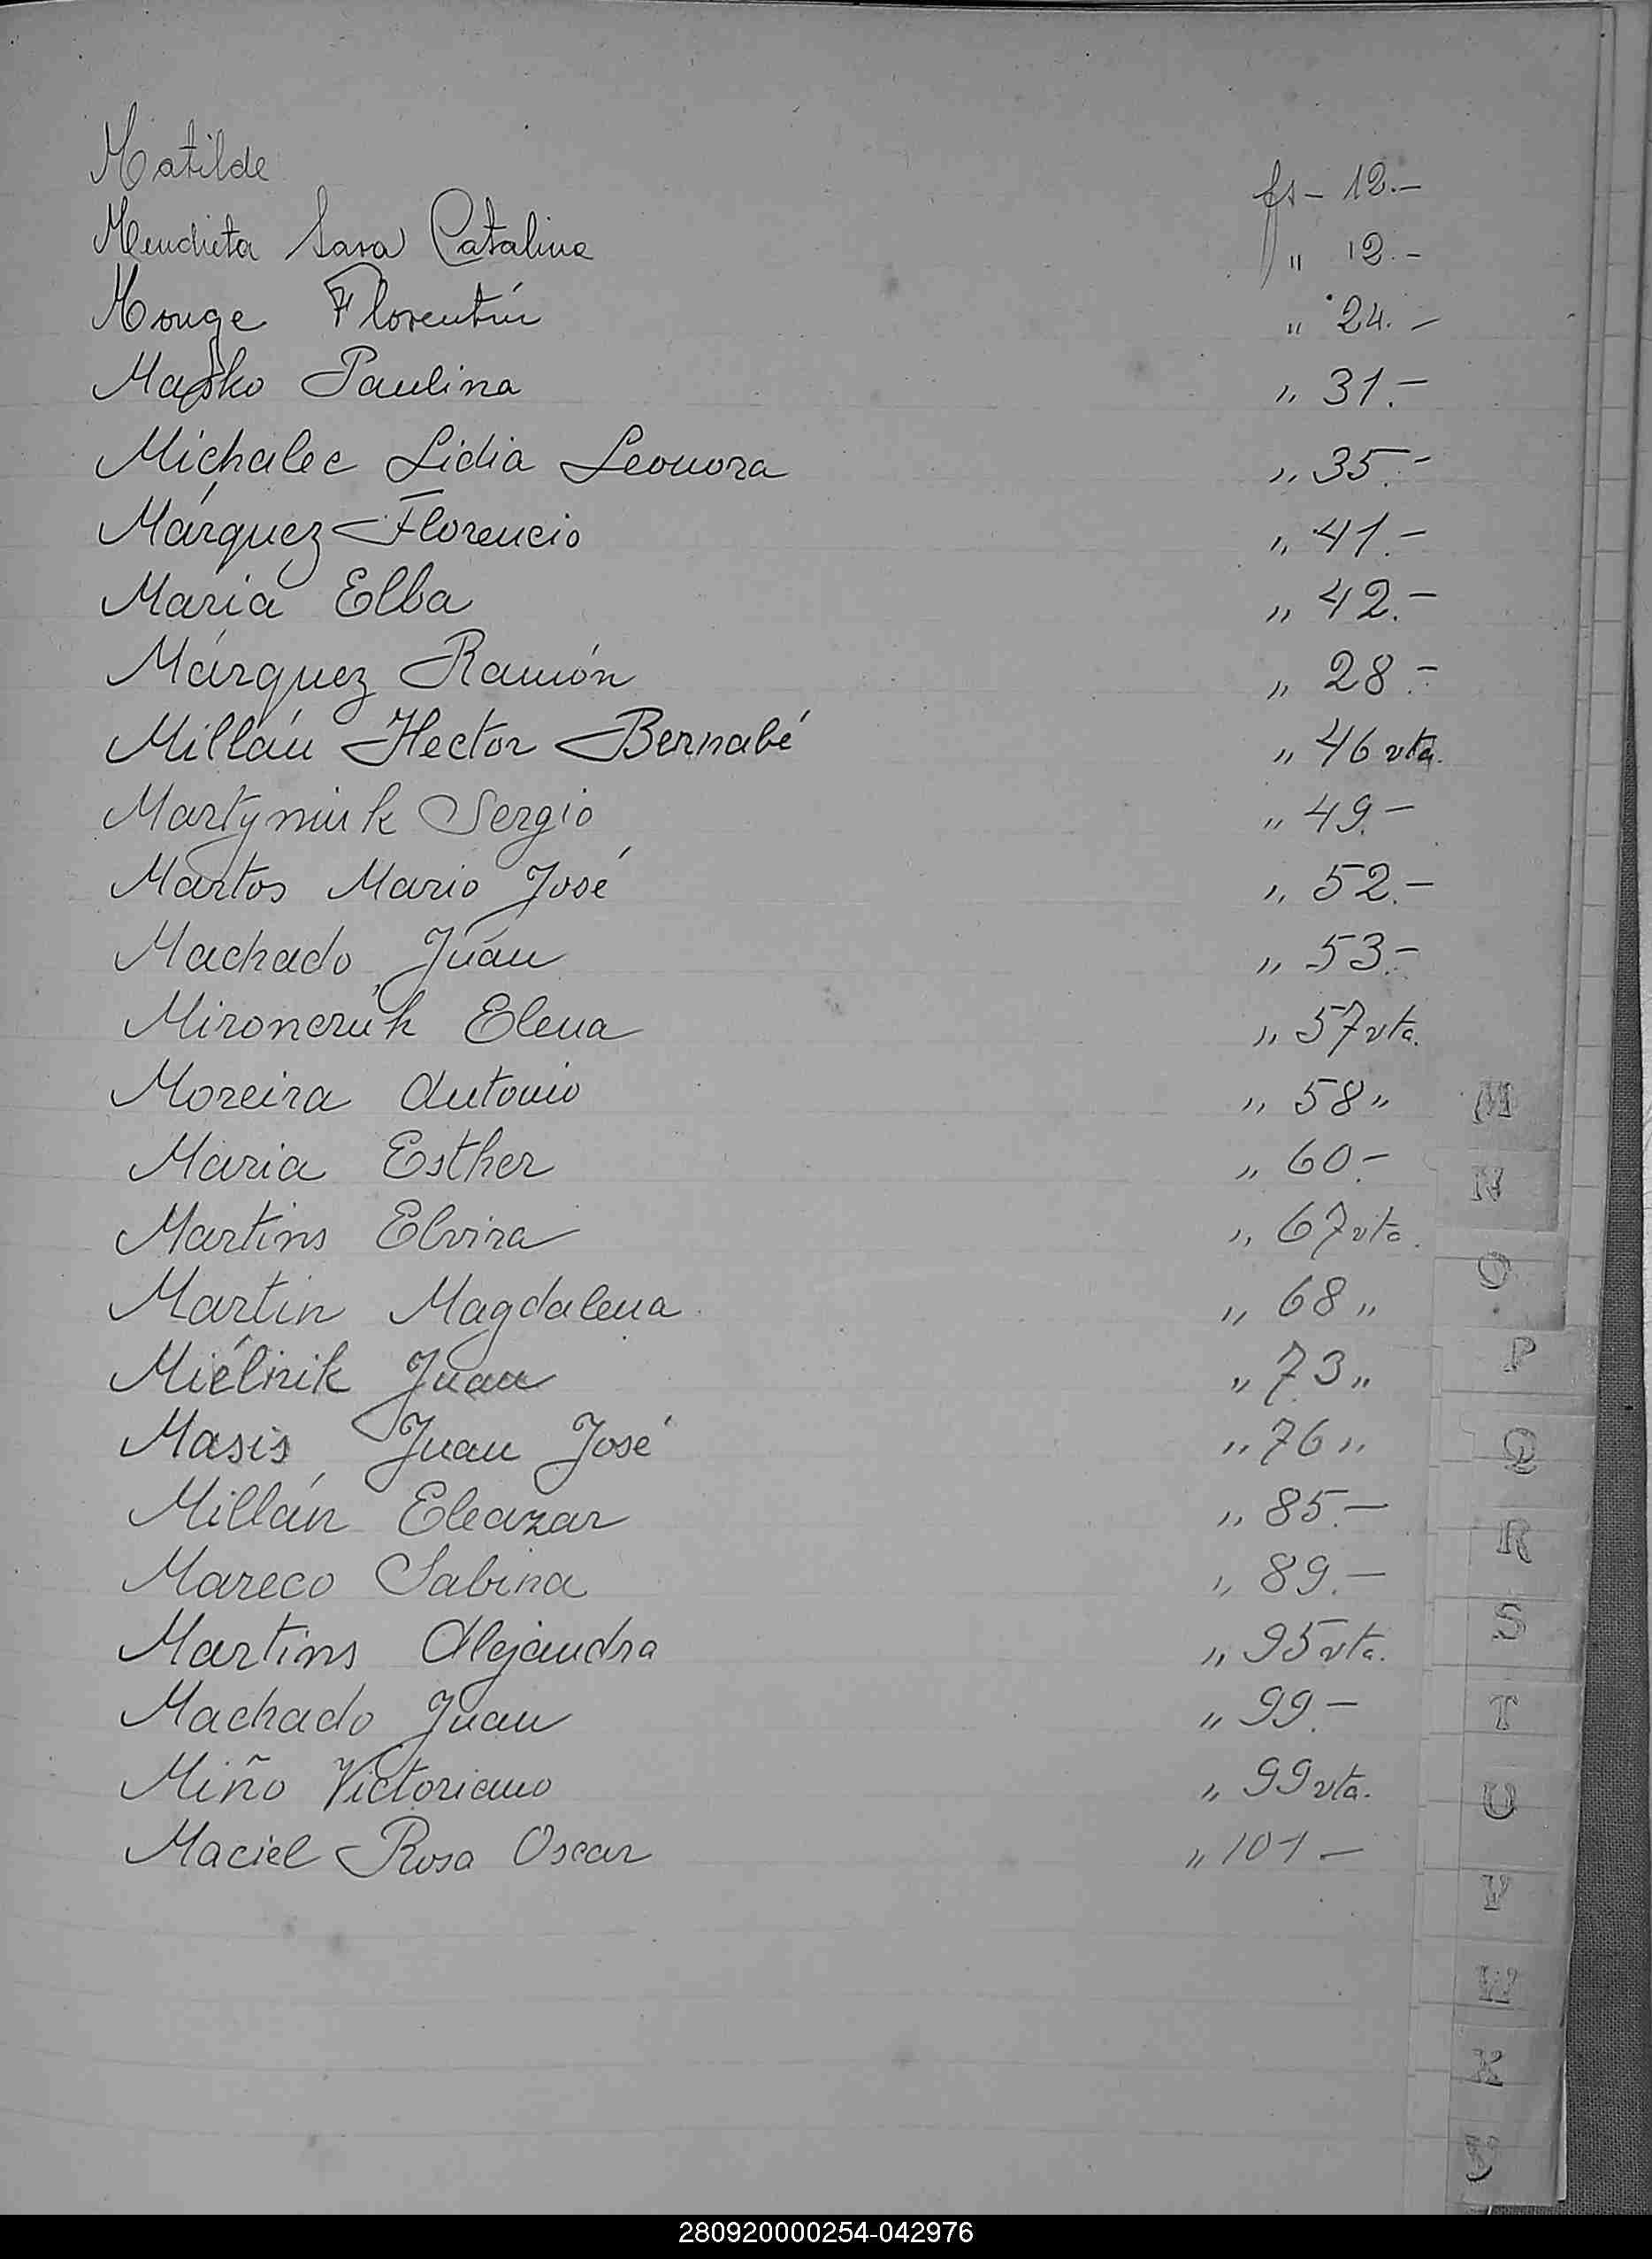 Matilde fs - 12.-
Mendieta Sara Catalina " 12.-
Monge Florentín " 24.-
Masko Paulina " 31.-
Michalec Lidia Leonora " 35.-
Márquez Florencio " 41.-
Maria Elba " 42.-
Márquez Ramón " 28.-
Millán Hector Bernabé " 46 vta.
Martyniuk Sergio " 49.-
Martos Mario José " 52.-
Machado Juan " 53.-
Mironczuk Elena " 57 vta.
Moreira Antonio " 58 "
Maria Esther " 60.-
Martins Elvira " 67 vta.
Martin Magdalena " 68 "
Miélnik Juan " 73 "
Masis Juan José " 76 "
Millán Eleazar " 85.-
Mareco Sabina " 89.-
Martins Alejandra " 95 vta.
Machado Juan " 99.-
Miño Victoriano " 99 vta.
Maciel Rosa Oscar " 101 -
M
N
O
P
Q
R
S
T
U
V
W
X
280920000254-042976